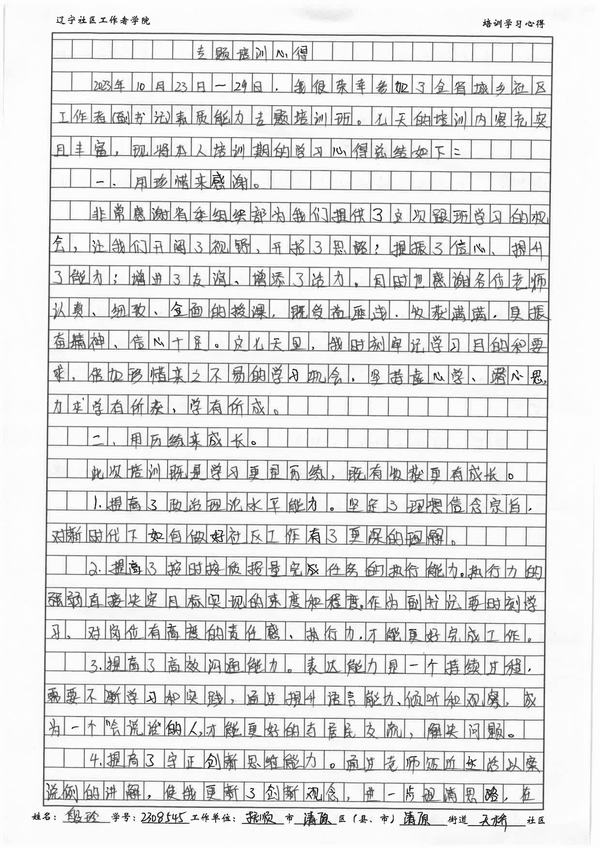 辽宁社区工作者学院 培训学习心得
专题培训心得
2023年10月23日—29日，我很荣幸参加了全省城乡社区
工作者(副书记)素质能力专题培训班。几天的培训内容充实
且丰富，现将本人培训期的学习心得总结如下：
一、用珍惜来感谢。
非常感谢省委组织部为我们提供了这次跟班学习的机
会，让我们开阔了视野、开拓了思路；提振了信心、提升
了能力；增进了友谊、增添了活力。同时也感谢各位老师
认真、细致、全面的授课，既负荷重战、收获满满，具振
奋精神、信心十足。这几天里，我时刻牢记学习目的和要
求，倍加珍惜来之不易的学习机会，坚持虚心学、潜心思，
力求学有所获、学有所成。
二、用历练来成长。
此次培训既是学习更是历练，既有收获更有成长。
1.提高了政治理论水平能力。坚定了理想信念宗旨，
对新时代下如何做好社区工作有了更深的理解。
2.提高了按时按质报量完成任务的执行能力。执行力的
强弱直接决定目标实现的速度和程度。作为副书记要时刻学
习、对岗位有高度的责任感、执行力，才能更好完成工作。
3.提高了高效沟通能力。表达能力是一个持续过程，
需要不断学习和实践，通过提升语言能力、倾听和观察，成
为一个“会说话”的人，才能更好的与居民交流，解决问题。
4.提高了守正创新思维能力。通过老师
说例的讲解，使我更新了创新观念，进一步理清思路，在
姓名：殷玲 学号：2308545 工作单位：抚顺 市 清原 区（县、市）清原 街道 天桥 社区